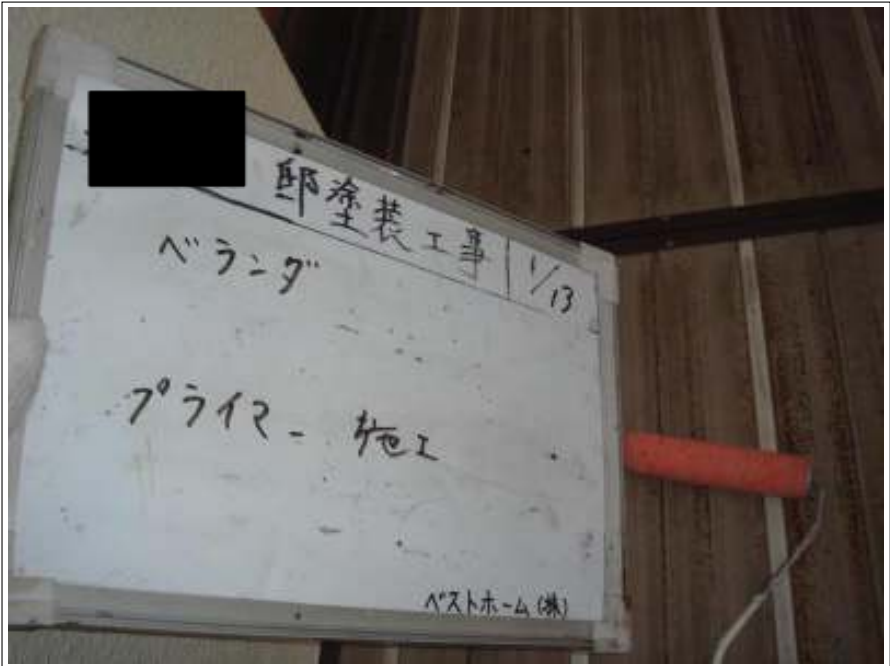 邸塗装工事 1/13
ベランダ
プライマー 施工
ベストホーム(株)